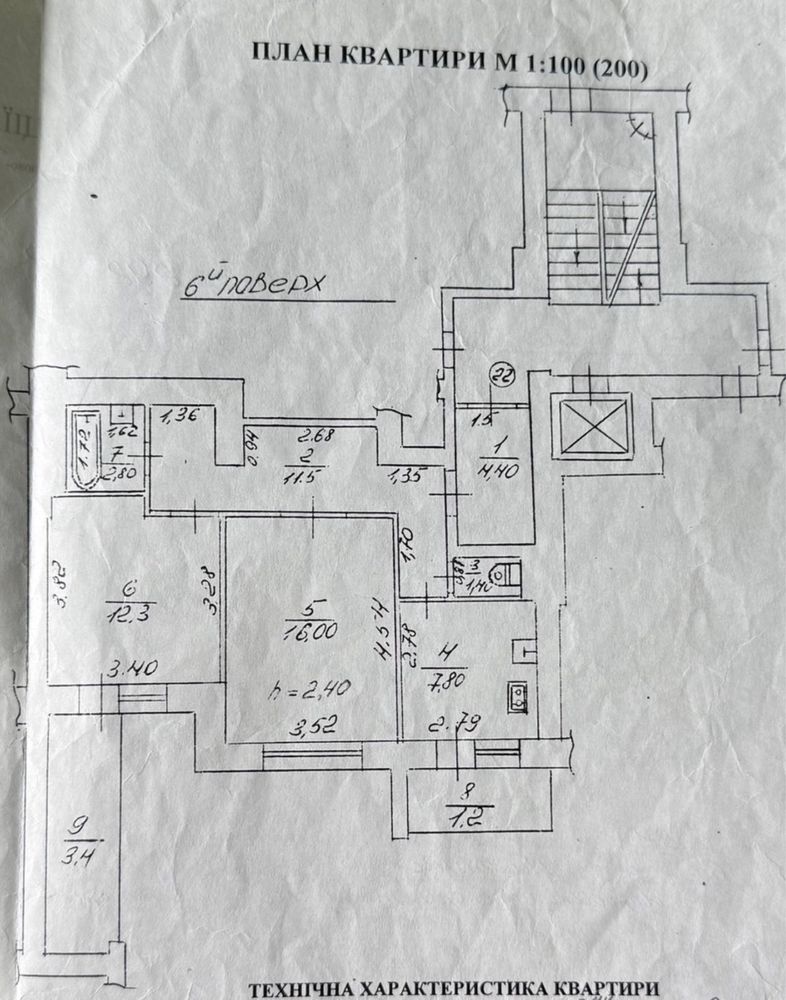 ПЛАН КВАРТИРИ М 1:100 (200)
6й поверх
22
1,36
2.68
1.5
1
4,40
0.94
2
11.5
1,35
1.72
1,62
7
2,80
1,70
3
0,87
1,40
3.82
6
12.3
3.28
5
16,00
4.54
2.78
4
7,80
3.40
h = 2,40
3,52
2.79
8
1,2
9
3,4
ТЕХНІЧНА ХАРАКТЕРИСТИКА КВАРТИРИ